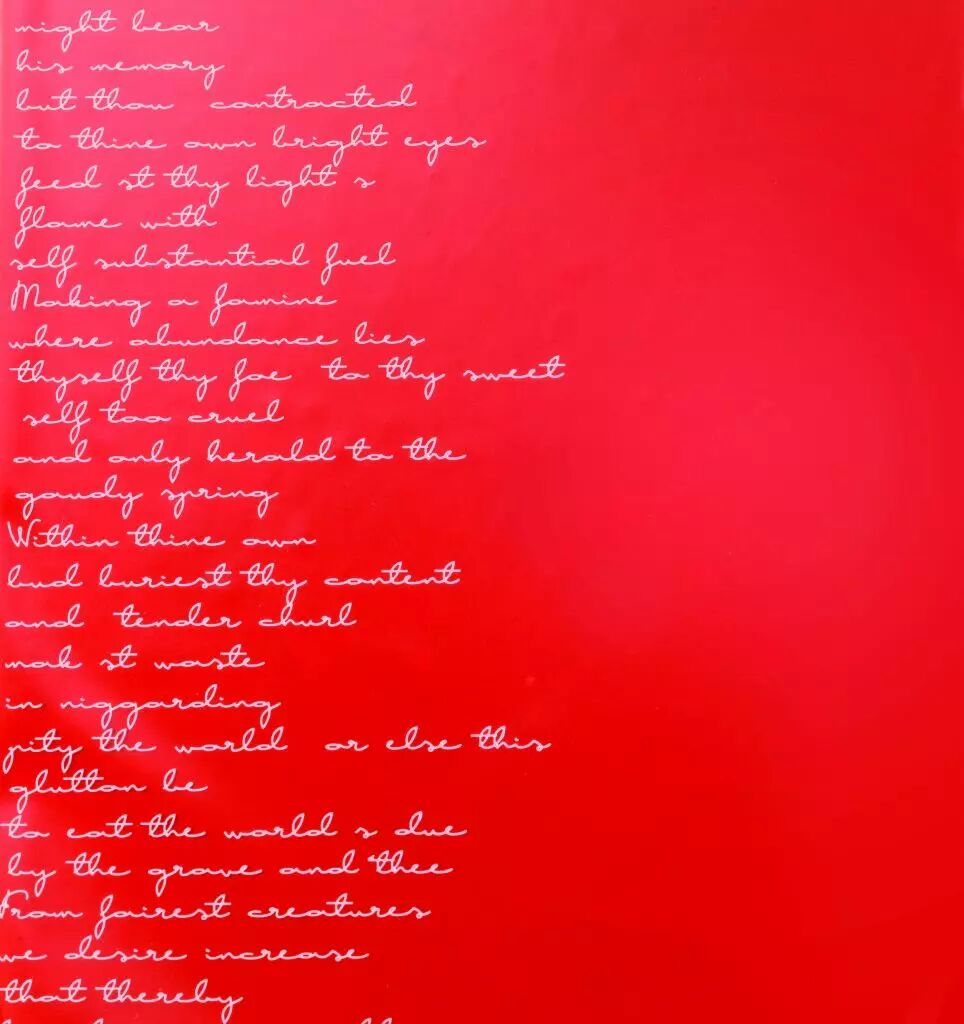 might bear
his memory
but thou contracted
to thine own bright eyes
feed st thy light s
flame with
self substantial fuel
Making a famine
where abundance lies
thyself thy foe to thy sweet
self too cruel
and only herald to the
gaudy spring
Within thine own
bud buriest thy content
and tender churl
mak st waste
in niggarding
pity the world or else this
glutton be
to eat the world s due
by the grave and thee
From fairest creatures
we desire increase
that thereby